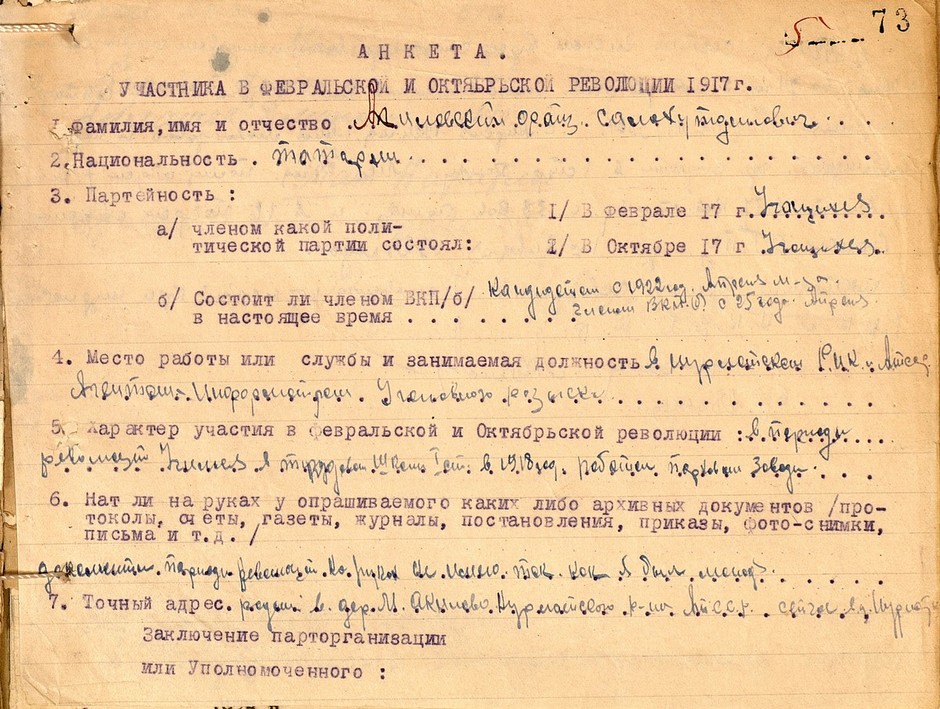 5 73
АНКЕТА.
УЧАСТНИКА В ФЕВРАЛЬСКОЙ И ОКТЯБРЬСКОЙ РЕВОЛЮЦИИ 1917 г.
I. Фамилия, имя и отчество . Салахутдинович . . .
2. Национальность . татарин . . . . . . . . . . . . . . . . . . . . . .
3. Партейность :
I/ В Феврале 17 г.
а/ членом какой поли-
тической партии состоял:
2/ В Октябре 17 г
б/ Состоит ли членом ВКП/б/ Кандидатом с 1922 год. Апреля м-ца.
в настоящее время . . . . . . . . Членом ВКП(б) с 25 года Апреля.
4. Место работы или службы и занимаемая должность в Нурлатском Р.И.К.
Уголовного розыска . . . . . . . . . . .
5. Характер участия в февральской и Октябрьской революции : в период . . .
революции я в 1918 год. работал
6. Нат ли на руках у опрашиваемого каких либо архивных документов /про-
токолы, счеты, газеты, журналы, постановления, приказы, фото-снимки,
письма и т.д. /
документы период революции на руках не имею так как я был молод . . . . . .
7. Точный адрес. в дер. М. Акулово Нурлатского р-на АТССР. сейчас
Заключение парторганизации
или Уполномоченного :